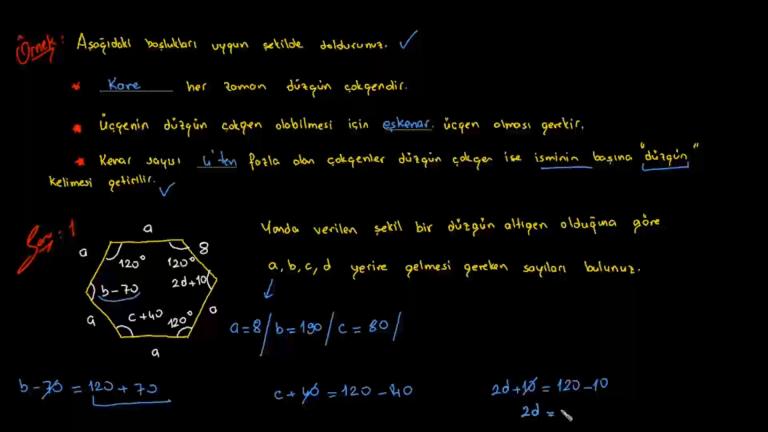 Örnek: Aşağıdaki boşlukları uygun şekilde doldurunuz. ✓
* Kare her zaman düzgün çokgendir.
* Üçgenin düzgün çokgen olabilmesi için eşkenar üçgen olması gerekir.
* Kenar sayısı 4'ten fazla olan çokgenler düzgün çokgen ise isminin başına "düzgün"
kelimesi getirilir. ✓
Soru: 1
Yanda verilen şekil bir düzgün altıgen olduğuna göre
a, b, c, d yerine gelmesi gereken sayıları bulunuz.
a
a
8
120°
120°
b-70
2d+10
c+40
120°
a
a
a
a=8/ b=190/ c=80/
b-70 = 120+70
c+40 = 120-40
2d+10 = 120-10
2d =